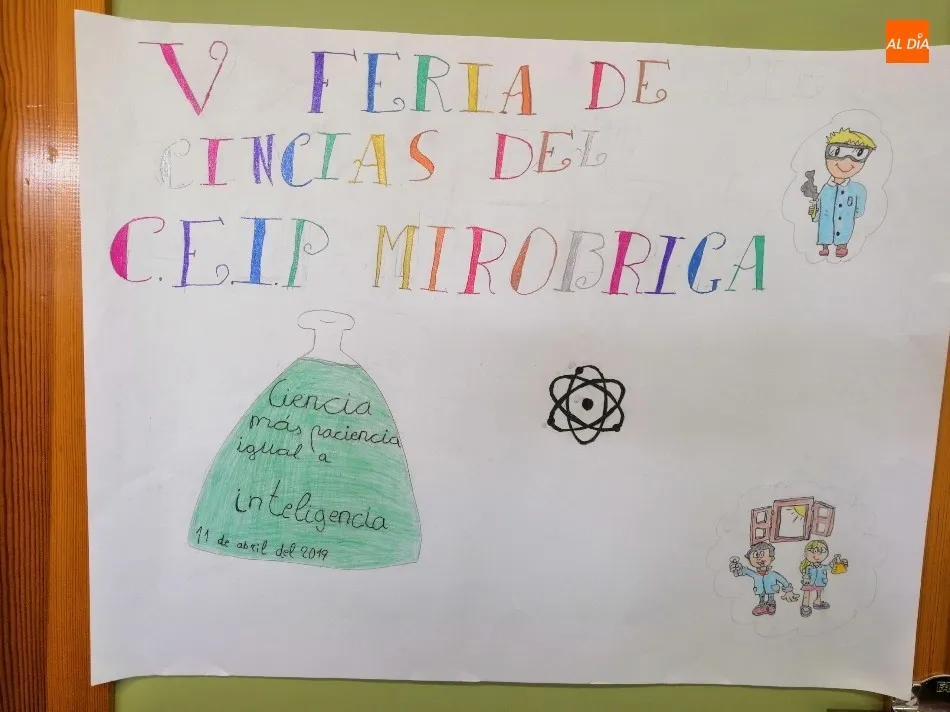 AL DÍA
V FERIA DE
CINCIAS DEL
C.E.I.P MIROBRIGA
Ciencia
más paciencia
igual a
inteligencia
11 de abril del 2019